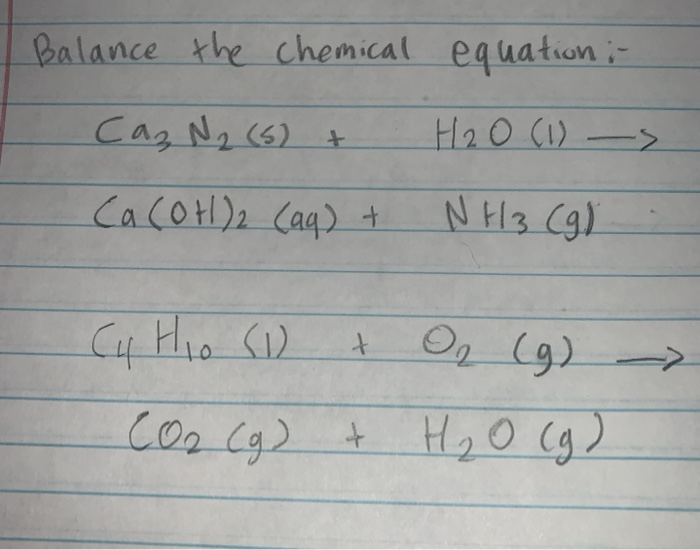 Balance the chemical equation :-
Ca₃ N₂ (s) + H₂O (l) ⟶
Ca(OH)₂ (aq) + NH₃ (g)
C₄ H₁₀ (l) + O₂ (g) ⟶
CO₂ (g) + H₂O (g)